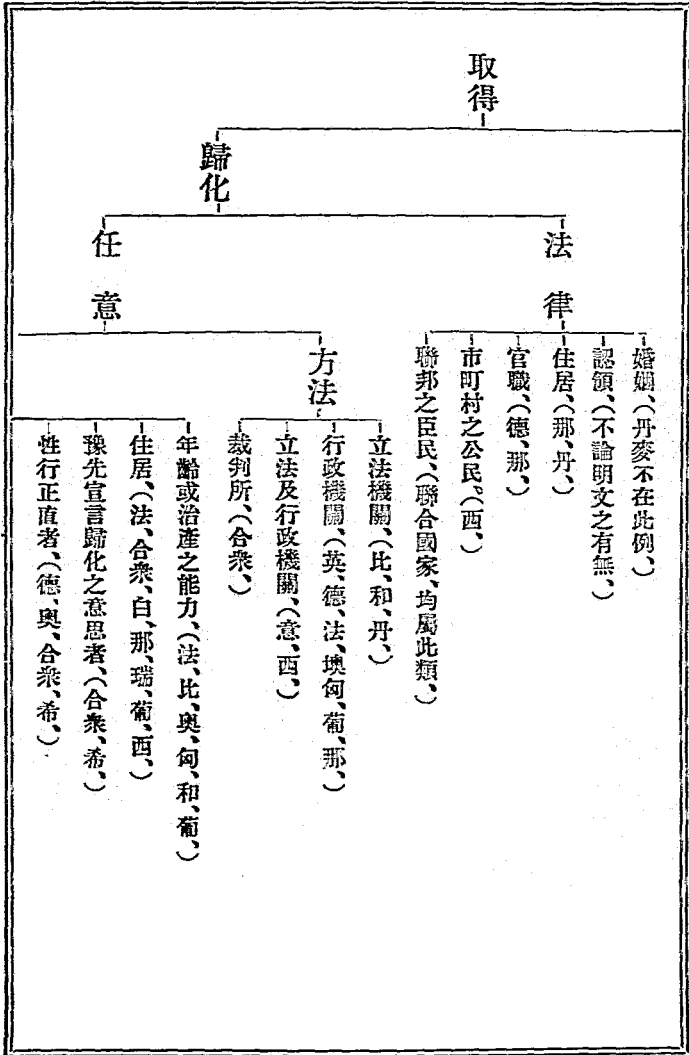 取得
歸化
法律
婚姻、(丹麥不在此例、)
認領、(不論明文之有無、)
住居、(那、丹、)
官職、(德、那、)
市町村之公民、(西、)
聯邦之臣民、(聯合國家、均屬此類、)
任意
方法
立法機關、(比、和、丹、)
行政機關、(英、德、法、墺匈、葡、那、)
立法及行政機關、(意、西、)
裁判所、(合衆、)
年齡或治產之能力、(法、比、奧、匈、和、葡、)
住居、(法、合衆、白、那、瑞、葡、西、)
豫先宣言歸化之意思者、(合衆、希、)
性行正直者、(德、奧、合衆、希、)